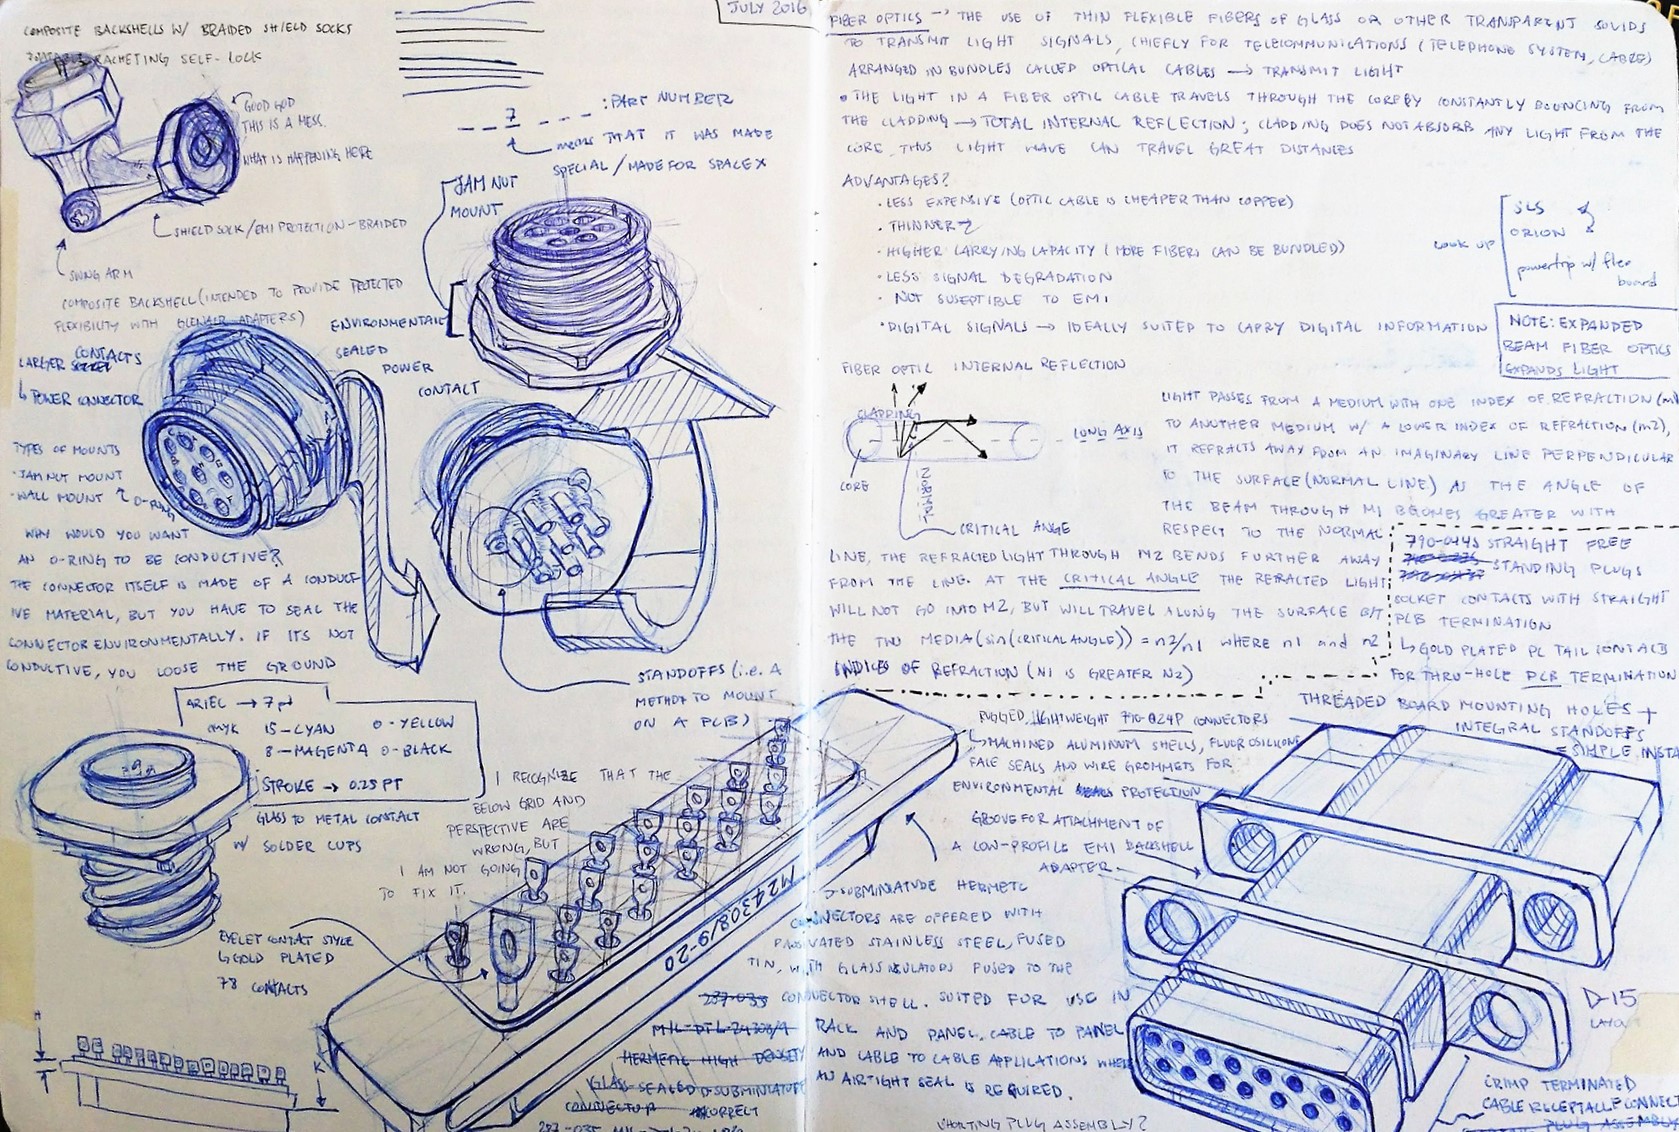 JULY 2016
COMPOSITE BACKSHELLS W/ BRAIDED SHIELD SOCKS
RACHETING SELF-LOCK
GOOD GOD
THIS IS A MESS.
WHAT IS HAPPENING HERE
SHIELD SOCK/EMI PROTECTION-BRAIDED
SWING ARM
COMPOSITE BACKSHELL (INTENDED TO PROVIDE PROTECTED
FLEXIBILITY WITH GLENAIR ADAPTERS)
7
: PART NUMBER
means THAT IT WAS MADE
SPECIAL/MADE FOR SPACE X
JAM NUT
MOUNT
ENVIRONMENTAL
SEALED
POWER
CONTACT
LARGER CONTACTS
↳ POWER CONNECTOR
TYPES OF MOUNTS
·JAM NUT MOUNT
·WALL MOUNT
O-RING
WHY WOULD YOU WANT
AN O-RING TO BE CONDUCTIVE?
THE CONNECTOR ITSELF IS MADE OF A CONDUCT-
IVE MATERIAL, BUT YOU HAVE TO SEAL THE
CONNECTOR ENVIRONMENTALLY. IF ITS NOT
CONDUCTIVE, YOU LOOSE THE GROUND
STANDOFFS (i.e. A
METHOD TO MOUNT
ON A PCB)
ARIEL → 7 pt
CMYK 15-CYAN 0-YELLOW
8-MAGENTA 0-BLACK
STROKE → 0.25 PT
GLASS TO METAL CONTACT
W/ SOLDER CUPS
I RECOGNIZE THAT THE
BELOW GRID AND
PERSPECTIVE ARE
WRONG, BUT
I AM NOT GOING
TO FIX IT.
EYELET CONTACT STYLE
↳ GOLD PLATED
78 CONTACTS
H
K
M24308/9-20
FIBER OPTICS → THE USE OF THIN FLEXIBLE FIBERS OF GLASS OR OTHER TRANSPARENT SOLIDS
TO TRANSMIT LIGHT SIGNALS, CHIEFLY FOR TELECOMMUNICATIONS (TELEPHONE SYSTEM, CABLES)
ARRANGED IN BUNDLES CALLED OPTICAL CABLES → TRANSMIT LIGHT
• THE LIGHT IN A FIBER OPTIC CABLE TRAVELS THROUGH THE CORE BY CONSTANTLY BOUNCING FROM
THE CLADDING → TOTAL INTERNAL REFLECTION; CLADDING DOES NOT ABSORB ANY LIGHT FROM THE
CORE, THUS LIGHT WAVE CAN TRAVEL GREAT DISTANCES
ADVANTAGES?
· LESS EXPENSIVE (OPTIC CABLE IS CHEAPER THAN COPPER)
· THINNER
· HIGHER CARRYING CAPACITY (MORE FIBERS CAN BE BUNDLED)
· LESS SIGNAL DEGRADATION
· NOT SUSEPTIBLE TO EMI
· DIGITAL SIGNALS → IDEALLY SUITED TO CARRY DIGITAL INFORMATION
LOOK UP
SLS
ORION
powertrip w/ flex
board
NOTE: EXPANDED
BEAM FIBER OPTICS
EXPANDS LIGHT
FIBER OPTIC INTERNAL REFLECTION
CLADDING
LONG AXIS
CORE
NORMAL
CRITICAL ANGE
LIGHT PASSES FROM A MEDIUM WITH ONE INDEX OF REFRACTION (m1)
TO ANOTHER MEDIUM W/ A LOWER INDEX OF REFRACTION (m2),
IT REFRACTS AWAY FROM AN IMAGINARY LINE PERPENDICULAR
TO THE SURFACE (NORMAL LINE) AS THE ANGLE OF
THE BEAM THROUGH M1 BECOMES GREATER WITH
RESPECT TO THE NORMAL
LINE, THE REFRACTED LIGHT THROUGH M2 BENDS FURTHER AWAY
FROM THE LINE. AT THE CRITICAL ANGLE THE REFRACTED LIGHT
WILL NOT GO INTO M2, BUT WILL TRAVEL ALONG THE SURFACE B/T
THE TWO MEDIA (sin(CRITICAL ANGLE)) = n2/n1 WHERE n1 and n2
INDICES OF REFRACTION (N1 IS GREATER N2)
790-044S STRAIGHT FREE
STANDING PLUGS
SOCKET CONTACTS WITH STRAIGHT
PCB TERMINATION
↳ GOLD PLATED PC TAIL CONTACTS
FOR THRU-HOLE PCB TERMINATION
THREADED BOARD MOUNTING HOLES +
INTEGRAL STANDOFFS
= SIMPLE INSTA
RUGGED, LIGHTWEIGHT 790-024P CONNECTORS
↳ MACHINED ALUMINUM SHELLS, FLUOROSILICONE
FACE SEALS AND WIRE GROMMETS FOR
ENVIRONMENTAL PROTECTION
GROOVE FOR ATTACHMENT OF
A LOW-PROFILE EMI BACKSHELL
ADAPTER
D-SUBMINIATURE HERMETC
CONNECTORS ARE OFFERED WITH
PASSIVATED STAINLESS STEEL, FUSED
TIN, WITH GLASS INSULATORS FUSED TO THE
287-035 CONNECTOR SHELL. SUITED FOR USE IN
RACK AND PANEL, CABLE TO PANEL
AND CABLE TO CABLE APPLICATIONS WHERE
AN AIRTIGHT SEAL IS REQUIRED.
MIL-DTL-24308/9
HERMETIC HIGH DENSITY
GLASS-SEALED D-SUBMINIATURE
CONNECTOR INCORRECT
SHORTING PLUG ASSEMBLY?
D-15
LAYOUT
CRIMP TERMINATED
CABLE RECEPTACLE CONNECT
PLUG ASSEMBLY